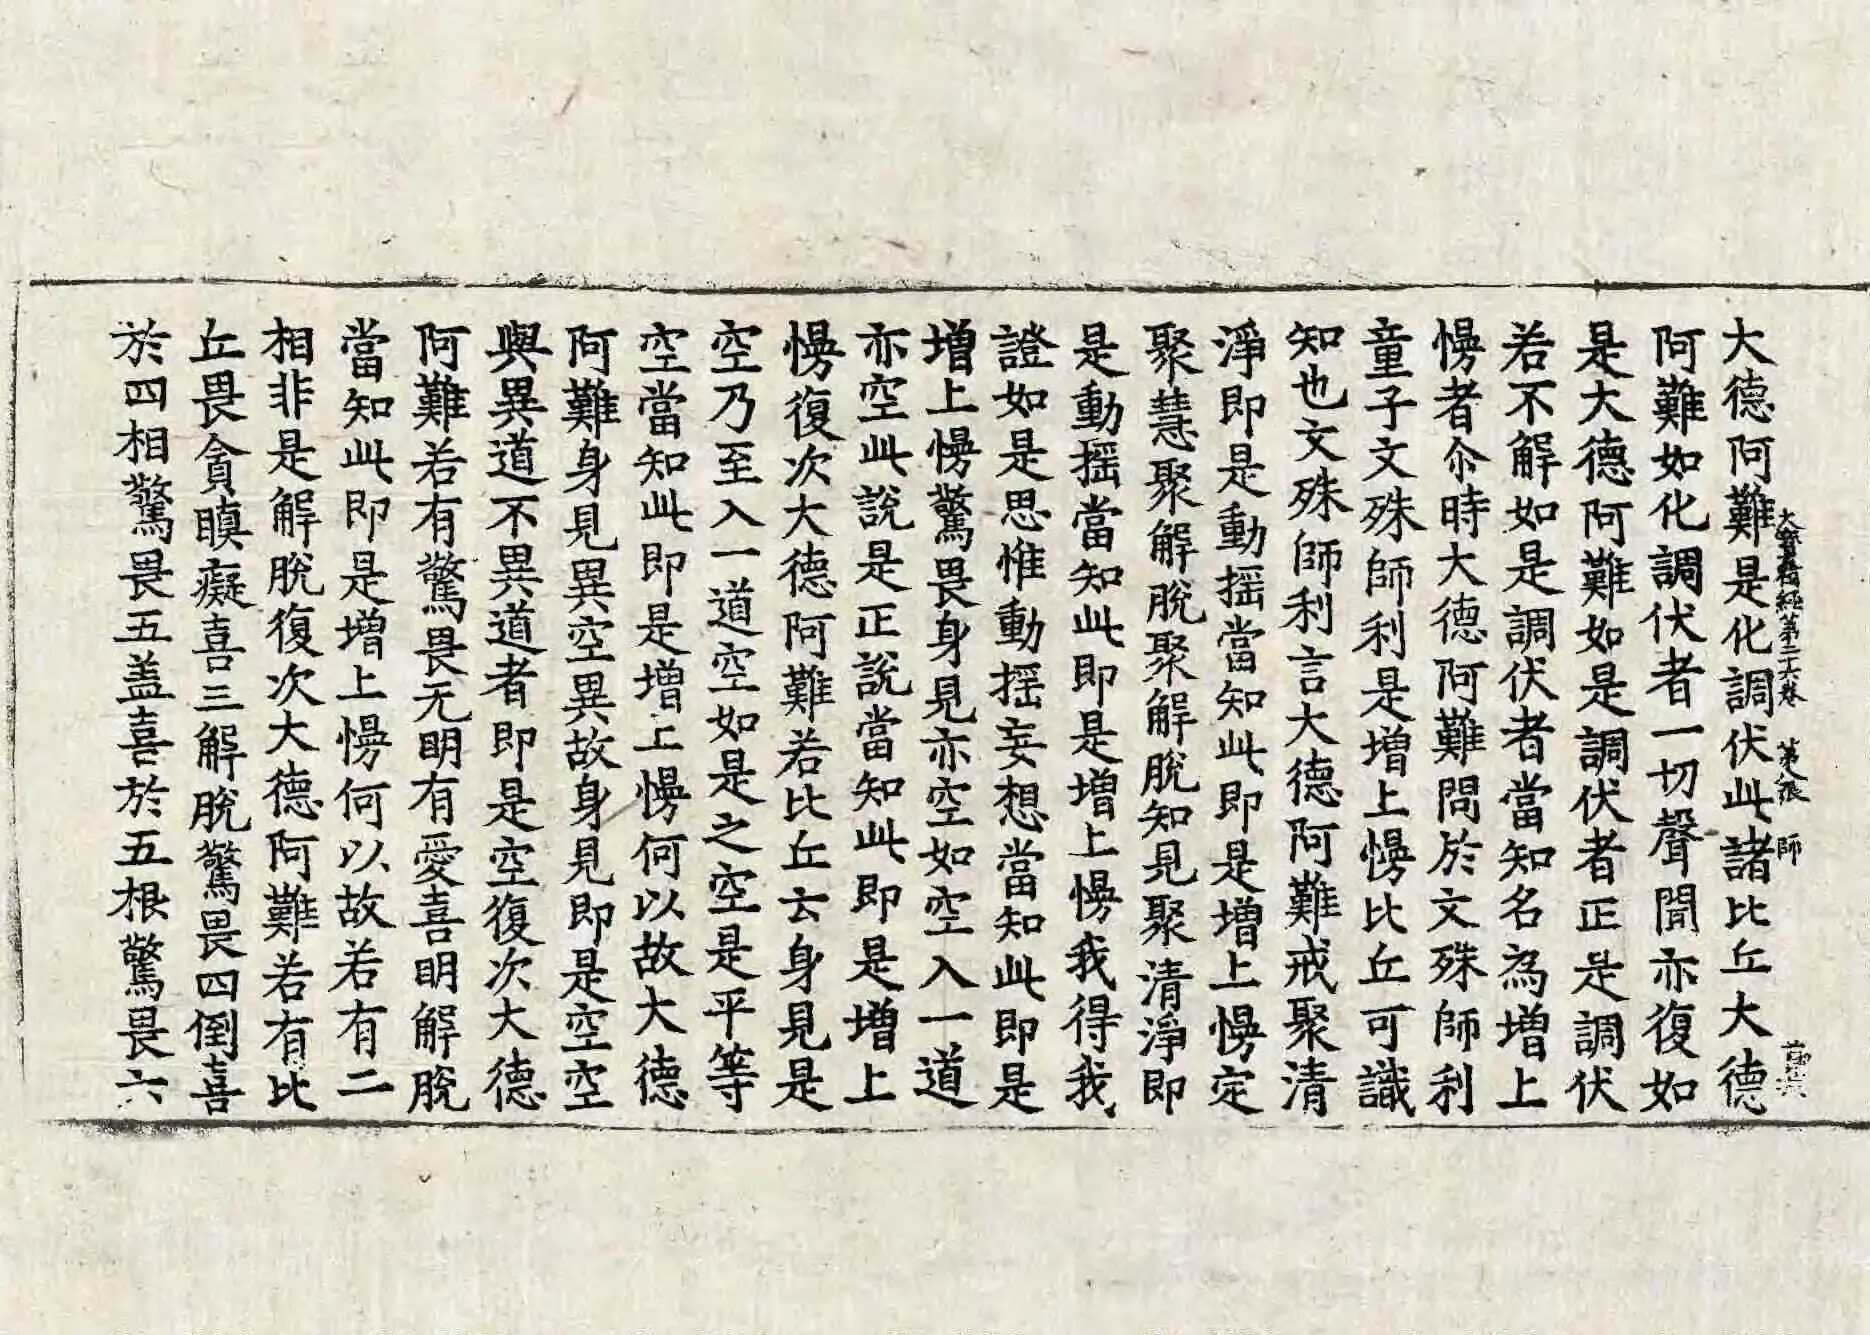 大德阿難是化調伏此諸比丘大德
大寶積經第二十六卷 第八張 師
阿難如化調伏者一切聲聞亦復如
是大德阿難如是調伏者正是調伏
若不解如是調伏者當知名為增上
慢者尒時大德阿難問於文殊師利
童子文殊師利是增上慢比丘可識
知也文殊師利言大德阿難戒聚清
淨即是動搖當知此即是增上慢定
聚慧聚解脫聚解脫知見聚清淨即
是動搖當知此即是增上慢我得我
證如是思惟動搖妄想當知此即是
增上慢驚畏身見亦空如空入一道
亦空此說是正說當知此即是增上
慢復次大德阿難若比丘云身見是
空乃至入一道空如是之空是平等
空當知此即是增上慢何以故大德
阿難身見異空異故身見即是空空
與異道不異道者即是空復次大德
阿難若有驚畏无明有愛喜明解脫
當知此即是增上慢何以故若有二
相非是解脫復次大德阿難若有比
丘畏貪瞋癡喜三解脫驚畏四倒喜
於四相驚畏五盖喜於五根驚畏六